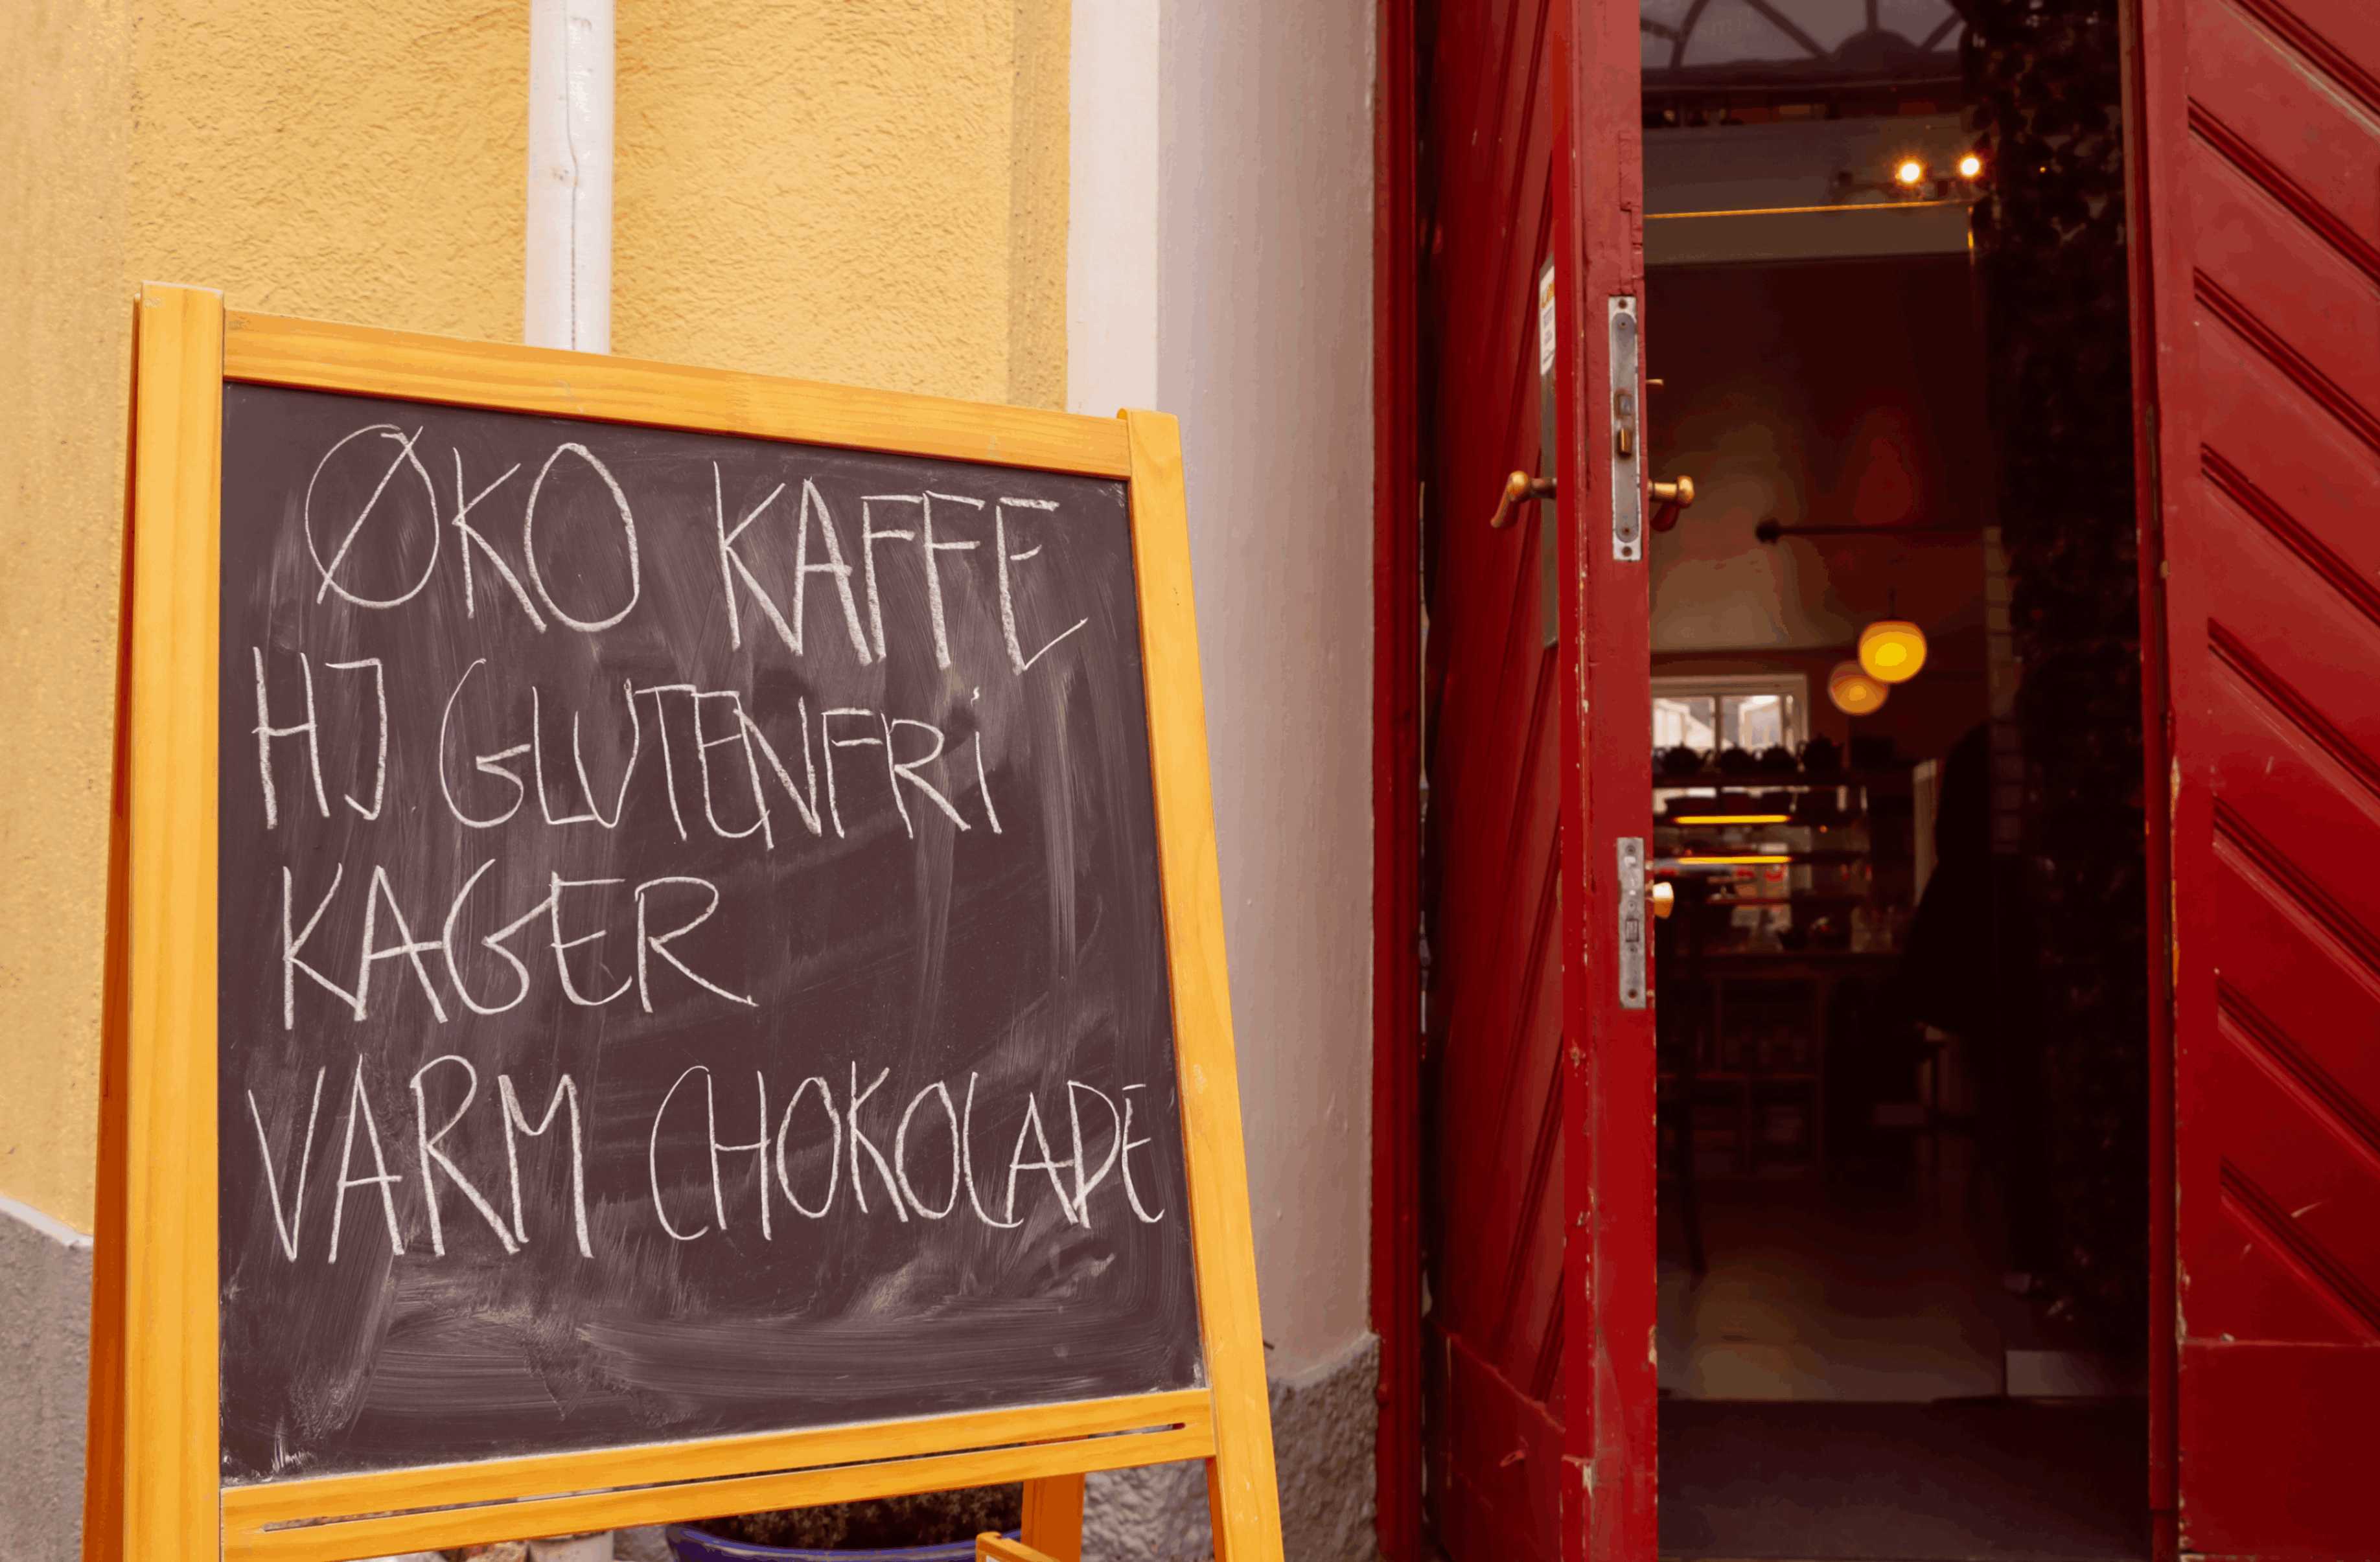 ØKO KAFFE
HJ GLUTENFRi
KAGER
VARM CHOKOLADE